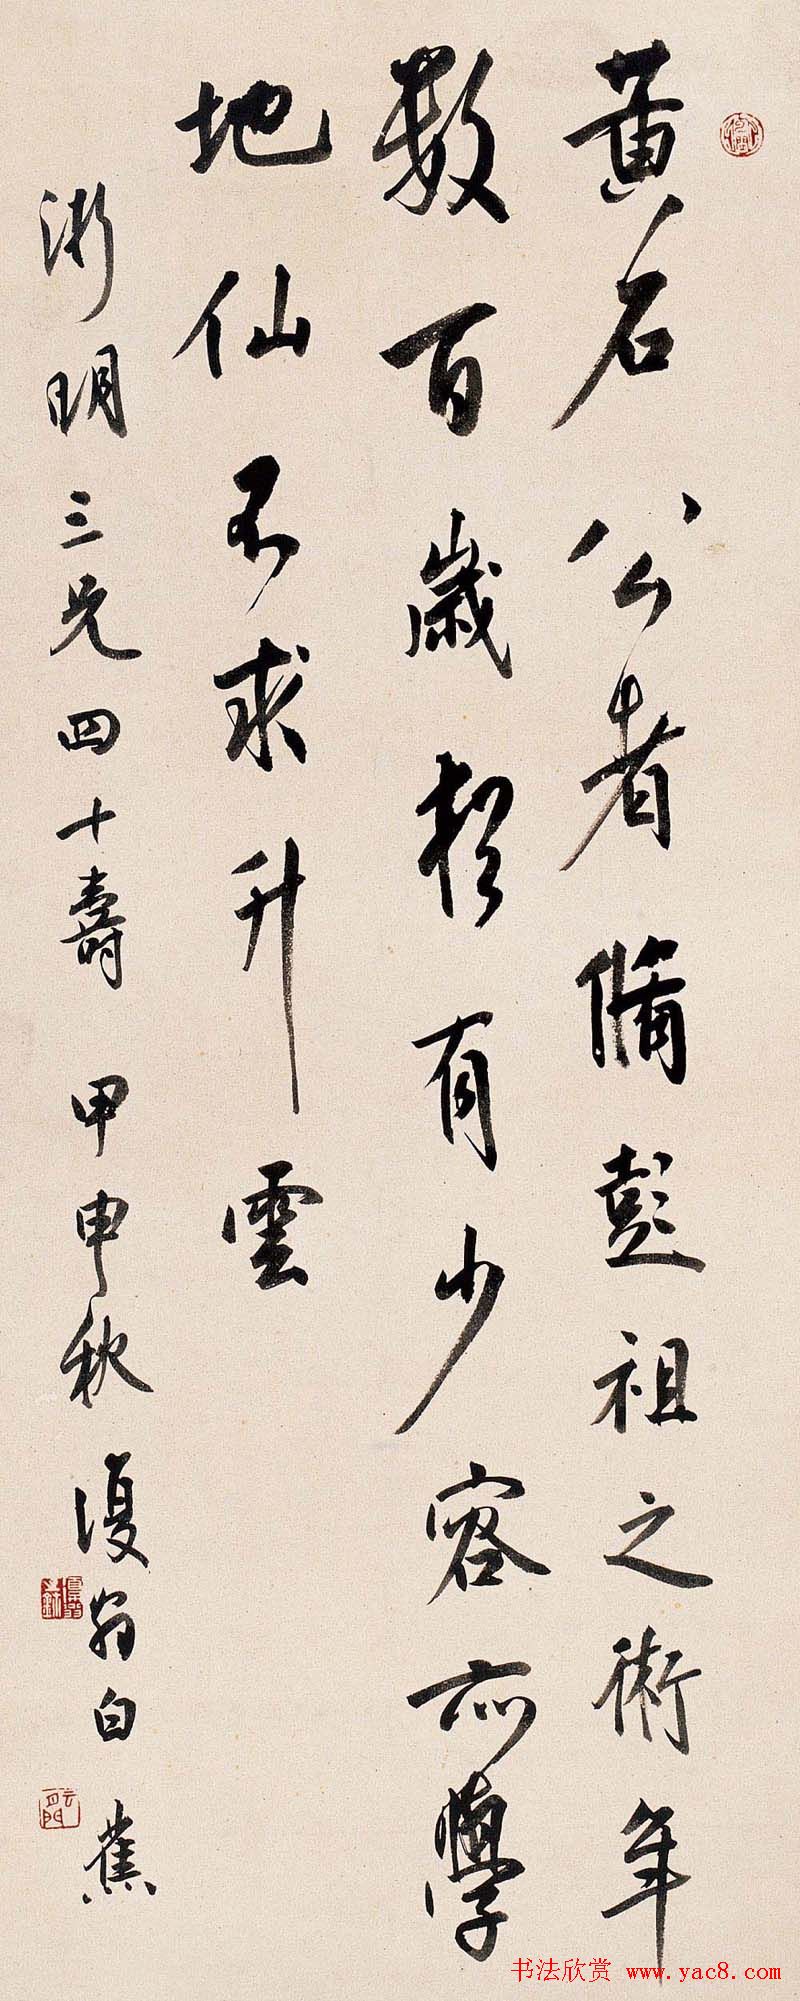 黃石公者脩彭祖之術年
數百歲有少容所學
地仙不求升雲
明三兄四十壽 甲申秋 復翁白蕉
书法欣赏 www.yac8.com